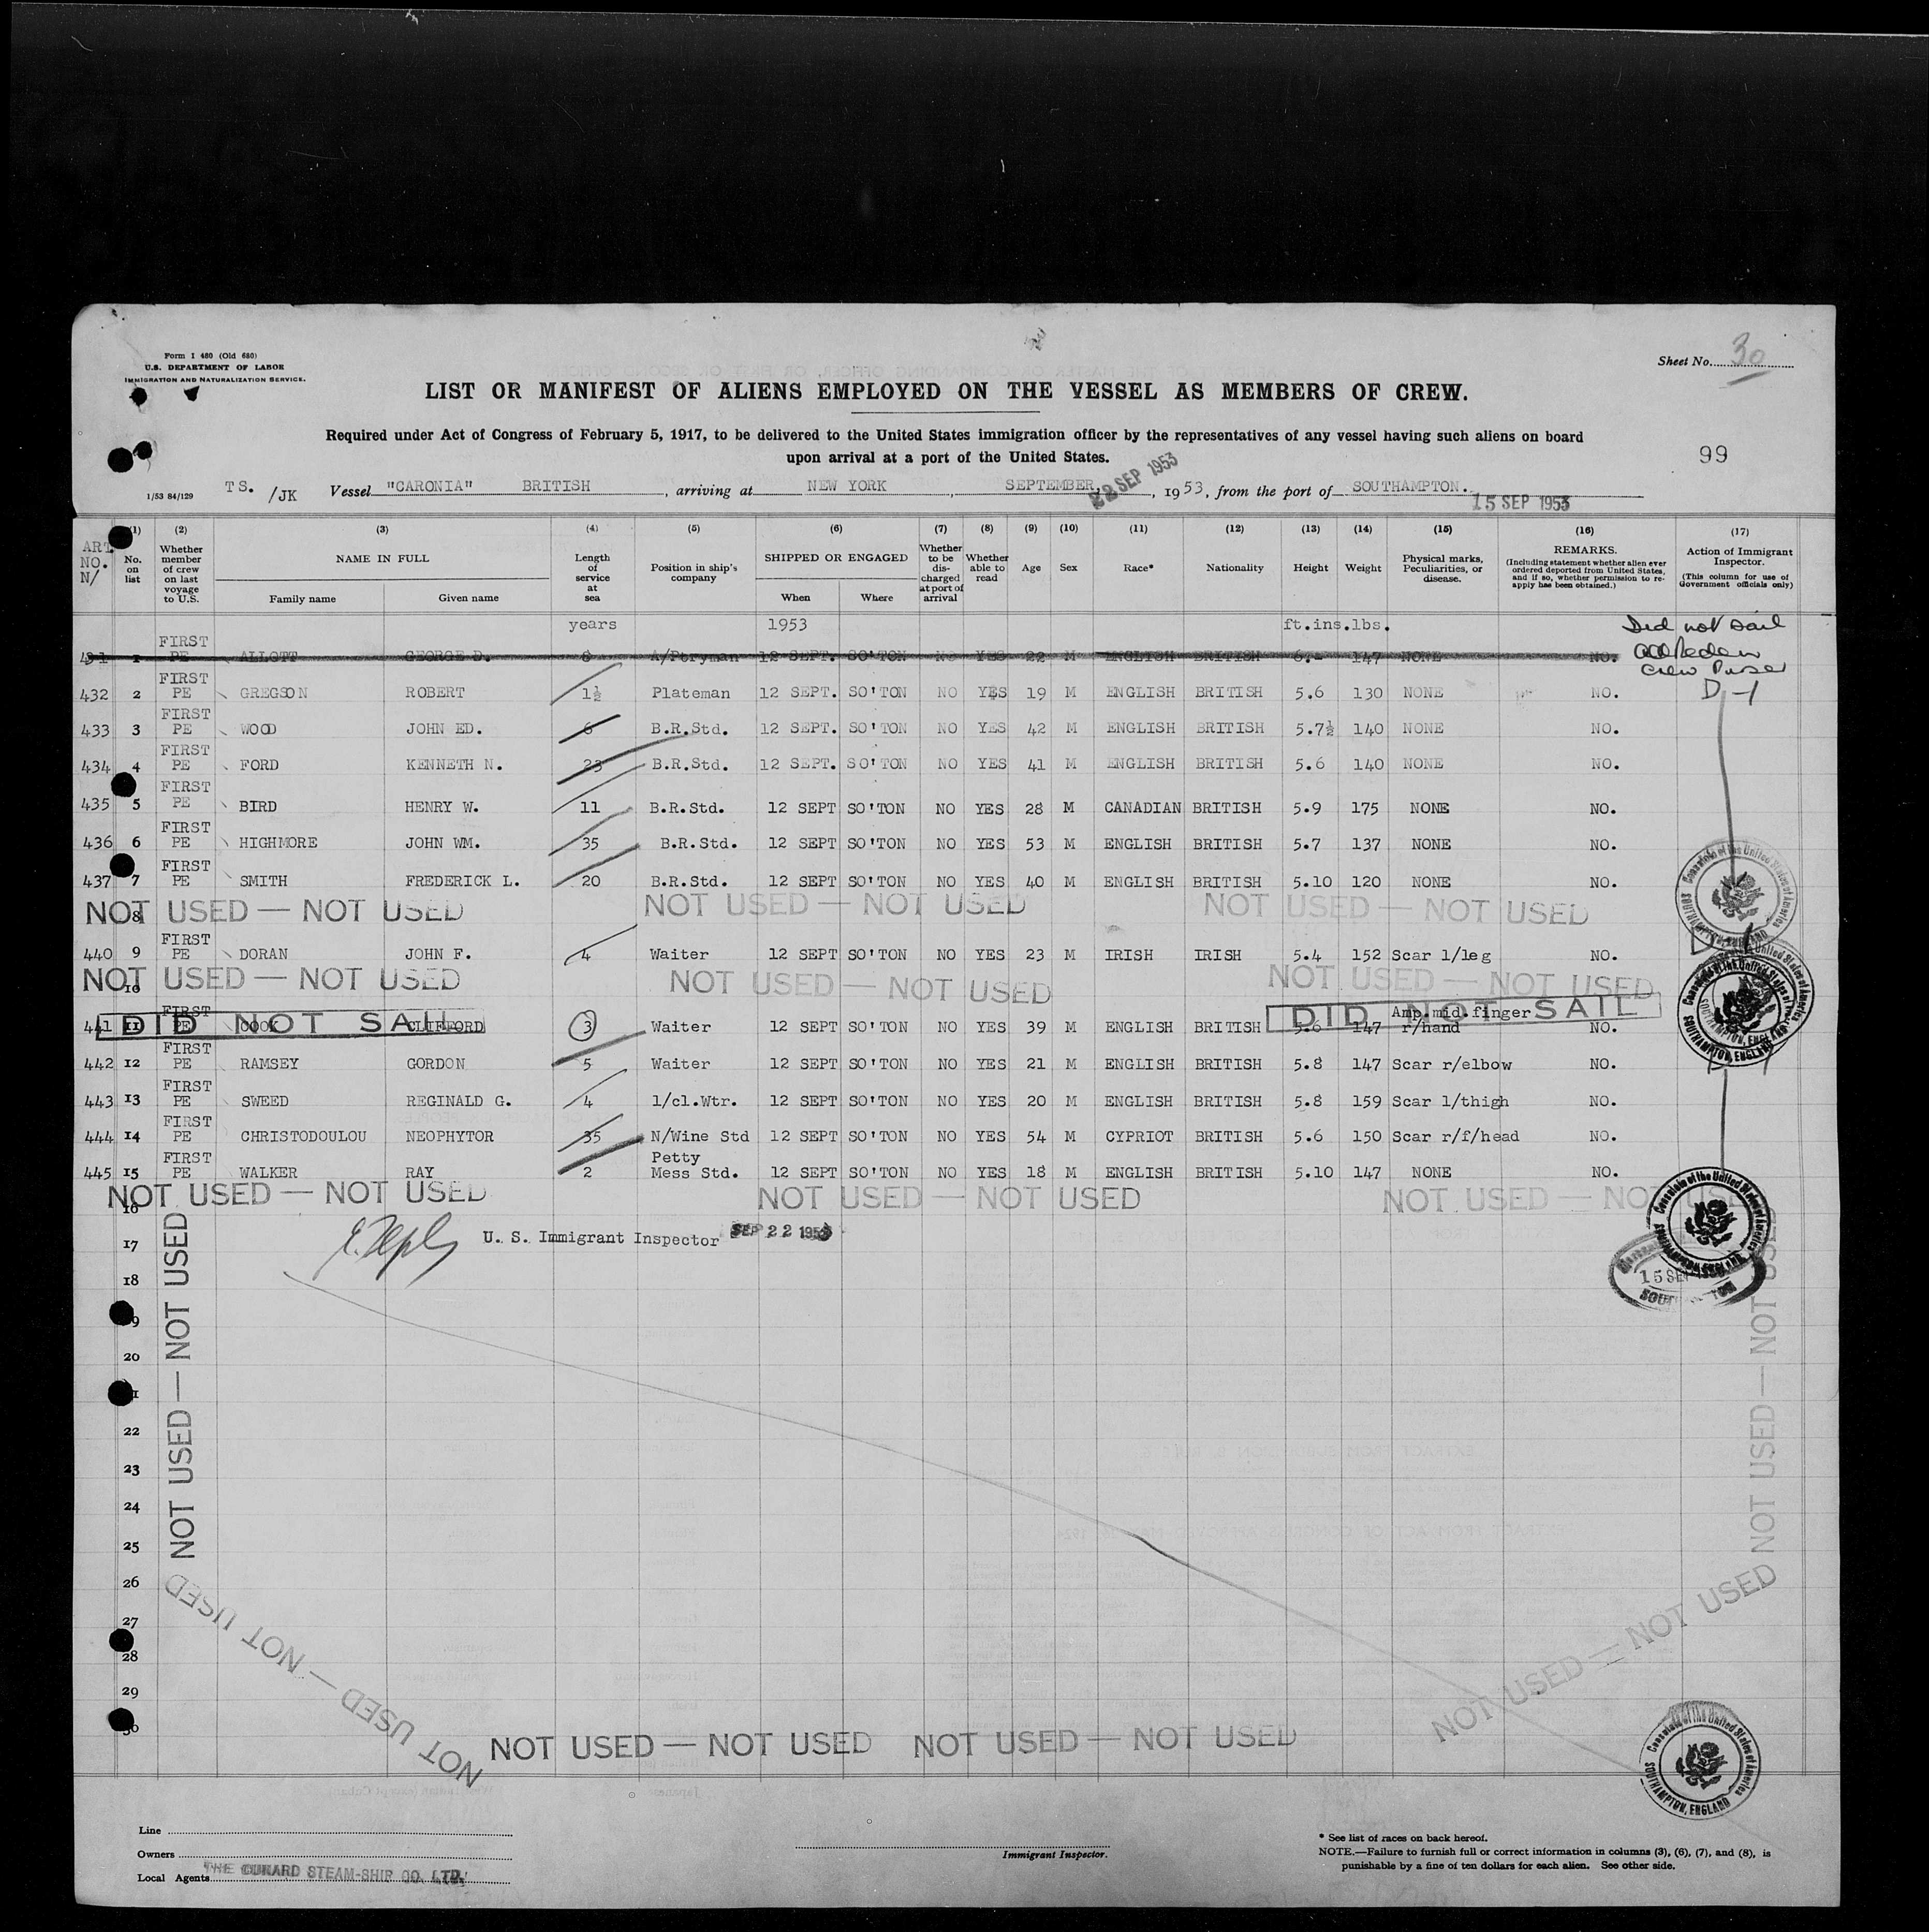 Form I 480 (Old 680)
U.S. DEPARTMENT OF LABOR
IMMIGRATION AND NATURALIZATION SERVICE.
Sheet No. 30
LIST OR MANIFEST OF ALIENS EMPLOYED ON THE VESSEL AS MEMBERS OF CREW.
Required under Act of Congress of February 5, 1917, to be delivered to the United States immigration officer by the representatives of any vessel having such aliens on board
upon arrival at a port of the United States.
99
1/53 84/129 TS. /JK Vessel "CARONIA" BRITISH, arriving at NEW YORK, SEPTEMBER, 22 SEP 1953, 1953, from the port of SOUTHAMPTON. 15 SEP 1953
ART. NO. N/
(1) No. on list
(2) Whether member of crew on last voyage to U.S.
(3) NAME IN FULL Family name Given name
(4) Length of service at sea
(5) Position in ship's company
(6) SHIPPED OR ENGAGED When Where
(7) Whether to be discharged at port of arrival
(8) Whether able to read
(9) Age
(10) Sex
(11) Race*
(12) Nationality
(13) Height
(14) Weight
(15) Physical marks, Peculiarities, or disease.
(16) REMARKS. (Including statement whether alien ever ordered deported from United States, and if so, whether permission to re-apply has been obtained.)
(17) Action of Immigrant Inspector. (This column for use of Government officials only)
years 1953 ft.ins.lbs.
Did not sail
431 1 FIRST PE ALLOTT GEORGE D. 6 A/Ptryman 12 SEPT. SO'TON NO YES 22 M ENGLISH BRITISH 6.- 147 NONE NO.
Crew Purser
432 2 FIRST PE GREGSON ROBERT 1½ Plateman 12 SEPT. SO'TON NO YES 19 M ENGLISH BRITISH 5.6 130 NONE NO. D-1
433 3 FIRST PE WOOD JOHN ED. 6 B.R.Std. 12 SEPT. SO'TON NO YES 42 M ENGLISH BRITISH 5.7½ 140 NONE NO.
434 4 FIRST PE FORD KENNETH N. 23 B.R.Std. 12 SEPT. SO'TON NO YES 41 M ENGLISH BRITISH 5.6 140 NONE NO.
435 5 FIRST PE BIRD HENRY W. 11 B.R.Std. 12 SEPT SO'TON NO YES 28 M CANADIAN BRITISH 5.9 175 NONE NO.
436 6 FIRST PE HIGHMORE JOHN WM. 35 B.R.Std. 12 SEPT SO'TON NO YES 53 M ENGLISH BRITISH 5.7 137 NONE NO.
437 7 FIRST PE SMITH FREDERICK L. 20 B.R.Std. 12 SEPT SO'TON NO YES 40 M ENGLISH BRITISH 5.10 120 NONE NO.
8 NOT USED — NOT USED NOT USED — NOT USED NOT USED — NOT USED
440 9 FIRST PE DORAN JOHN F. 4 Waiter 12 SEPT SO'TON NO YES 23 M IRISH IRISH 5.4 152 Scar l/leg NO.
10 NOT USED — NOT USED NOT USED — NOT USED NOT USED — NOT USED
DID NOT SAIL DID NOT SAIL
441 11 FIRST PE COOK CLIFFORD 3 Waiter 12 SEPT SO'TON NO YES 39 M ENGLISH BRITISH 5.6 147 Amp.mid.finger r/hand NO.
442 12 FIRST PE RAMSEY GORDON 5 Waiter 12 SEPT SO'TON NO YES 21 M ENGLISH BRITISH 5.8 147 Scar r/elbow NO.
443 13 FIRST PE SWEED REGINALD G. 4 1/cl.Wtr. 12 SEPT SO'TON NO YES 20 M ENGLISH BRITISH 5.8 159 Scar l/thigh NO.
444 14 FIRST PE CHRISTODOULOU NEOPHYTOR 35 N/Wine Std 12 SEPT SO'TON NO YES 54 M CYPRIOT BRITISH 5.6 150 Scar r/f/head NO.
445 15 FIRST PE WALKER RAY 2 Petty Mess Std. 12 SEPT SO'TON NO YES 18 M ENGLISH BRITISH 5.10 147 NONE NO.
16 NOT USED — NOT USED NOT USED — NOT USED NOT USED — NOT USED
17 U. S. Immigrant Inspector SEP 22 1953
18
15 SEP
20
22
23
24
25
26
27
28
29
30
NOT USED — NOT USED
NOT USED — NOT USED
NOT USED — NOT USED
NOT USED — NOT USED
NOT USED — NOT USED NOT USED — NOT USED
Consulate of the United States of America SOUTHAMPTON, ENGLAND
Line
Owners
Local Agents THE CUNARD STEAM-SHIP CO. LTD.
Immigrant Inspector.
* See list of races on back hereof.
NOTE.—Failure to furnish full or correct information in columns (3), (6), (7), and (8), is
punishable by a fine of ten dollars for each alien. See other side.